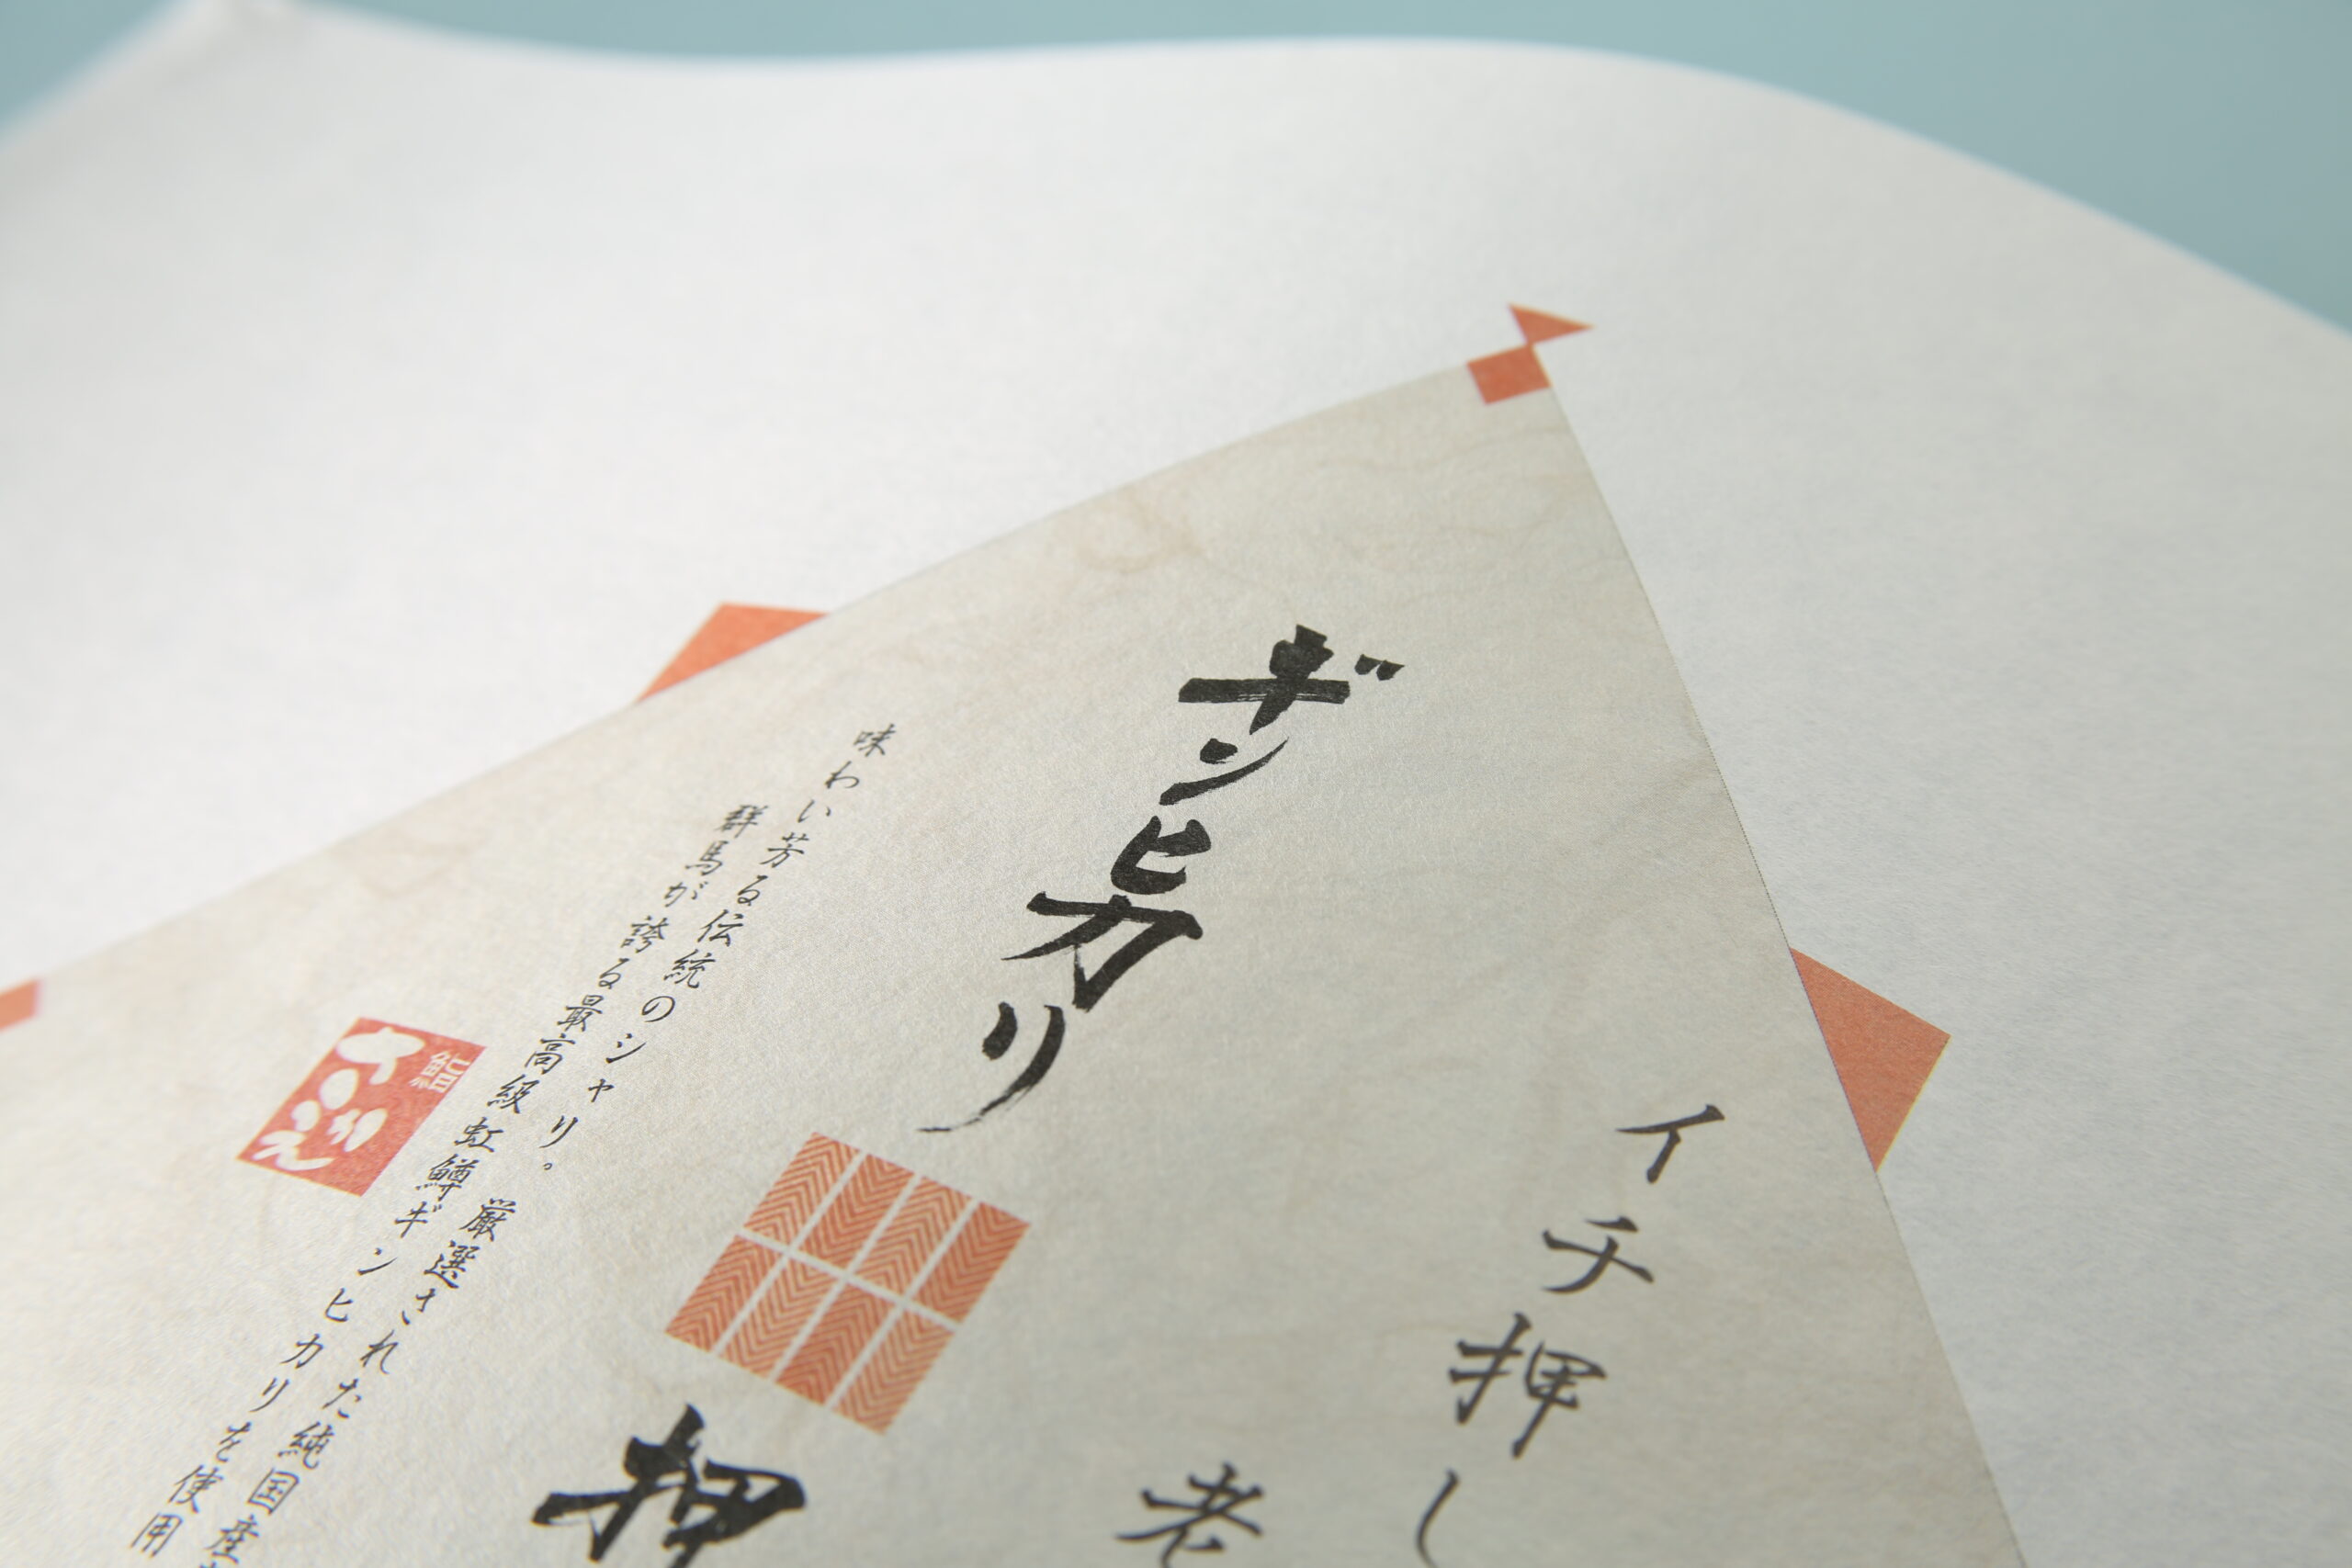 イチ押し
老
ギンヒカリ
押
味わい芳る伝統のシャリ。厳選された純国産
群馬が誇る最高級虹鱒ギンヒカリを使用
鮨